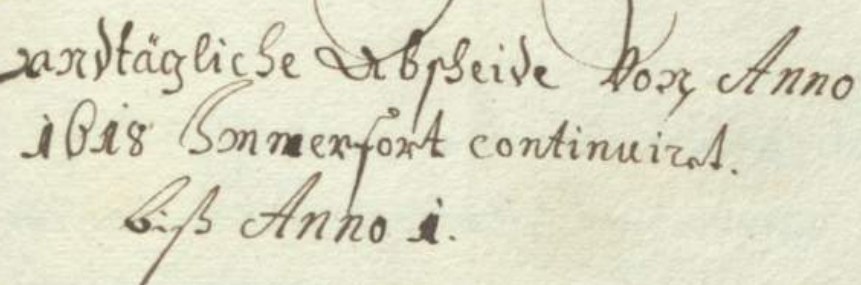 Landtägliche Abscheide Von Anno
1618 Immerfort continuiret.
biß Anno 1.